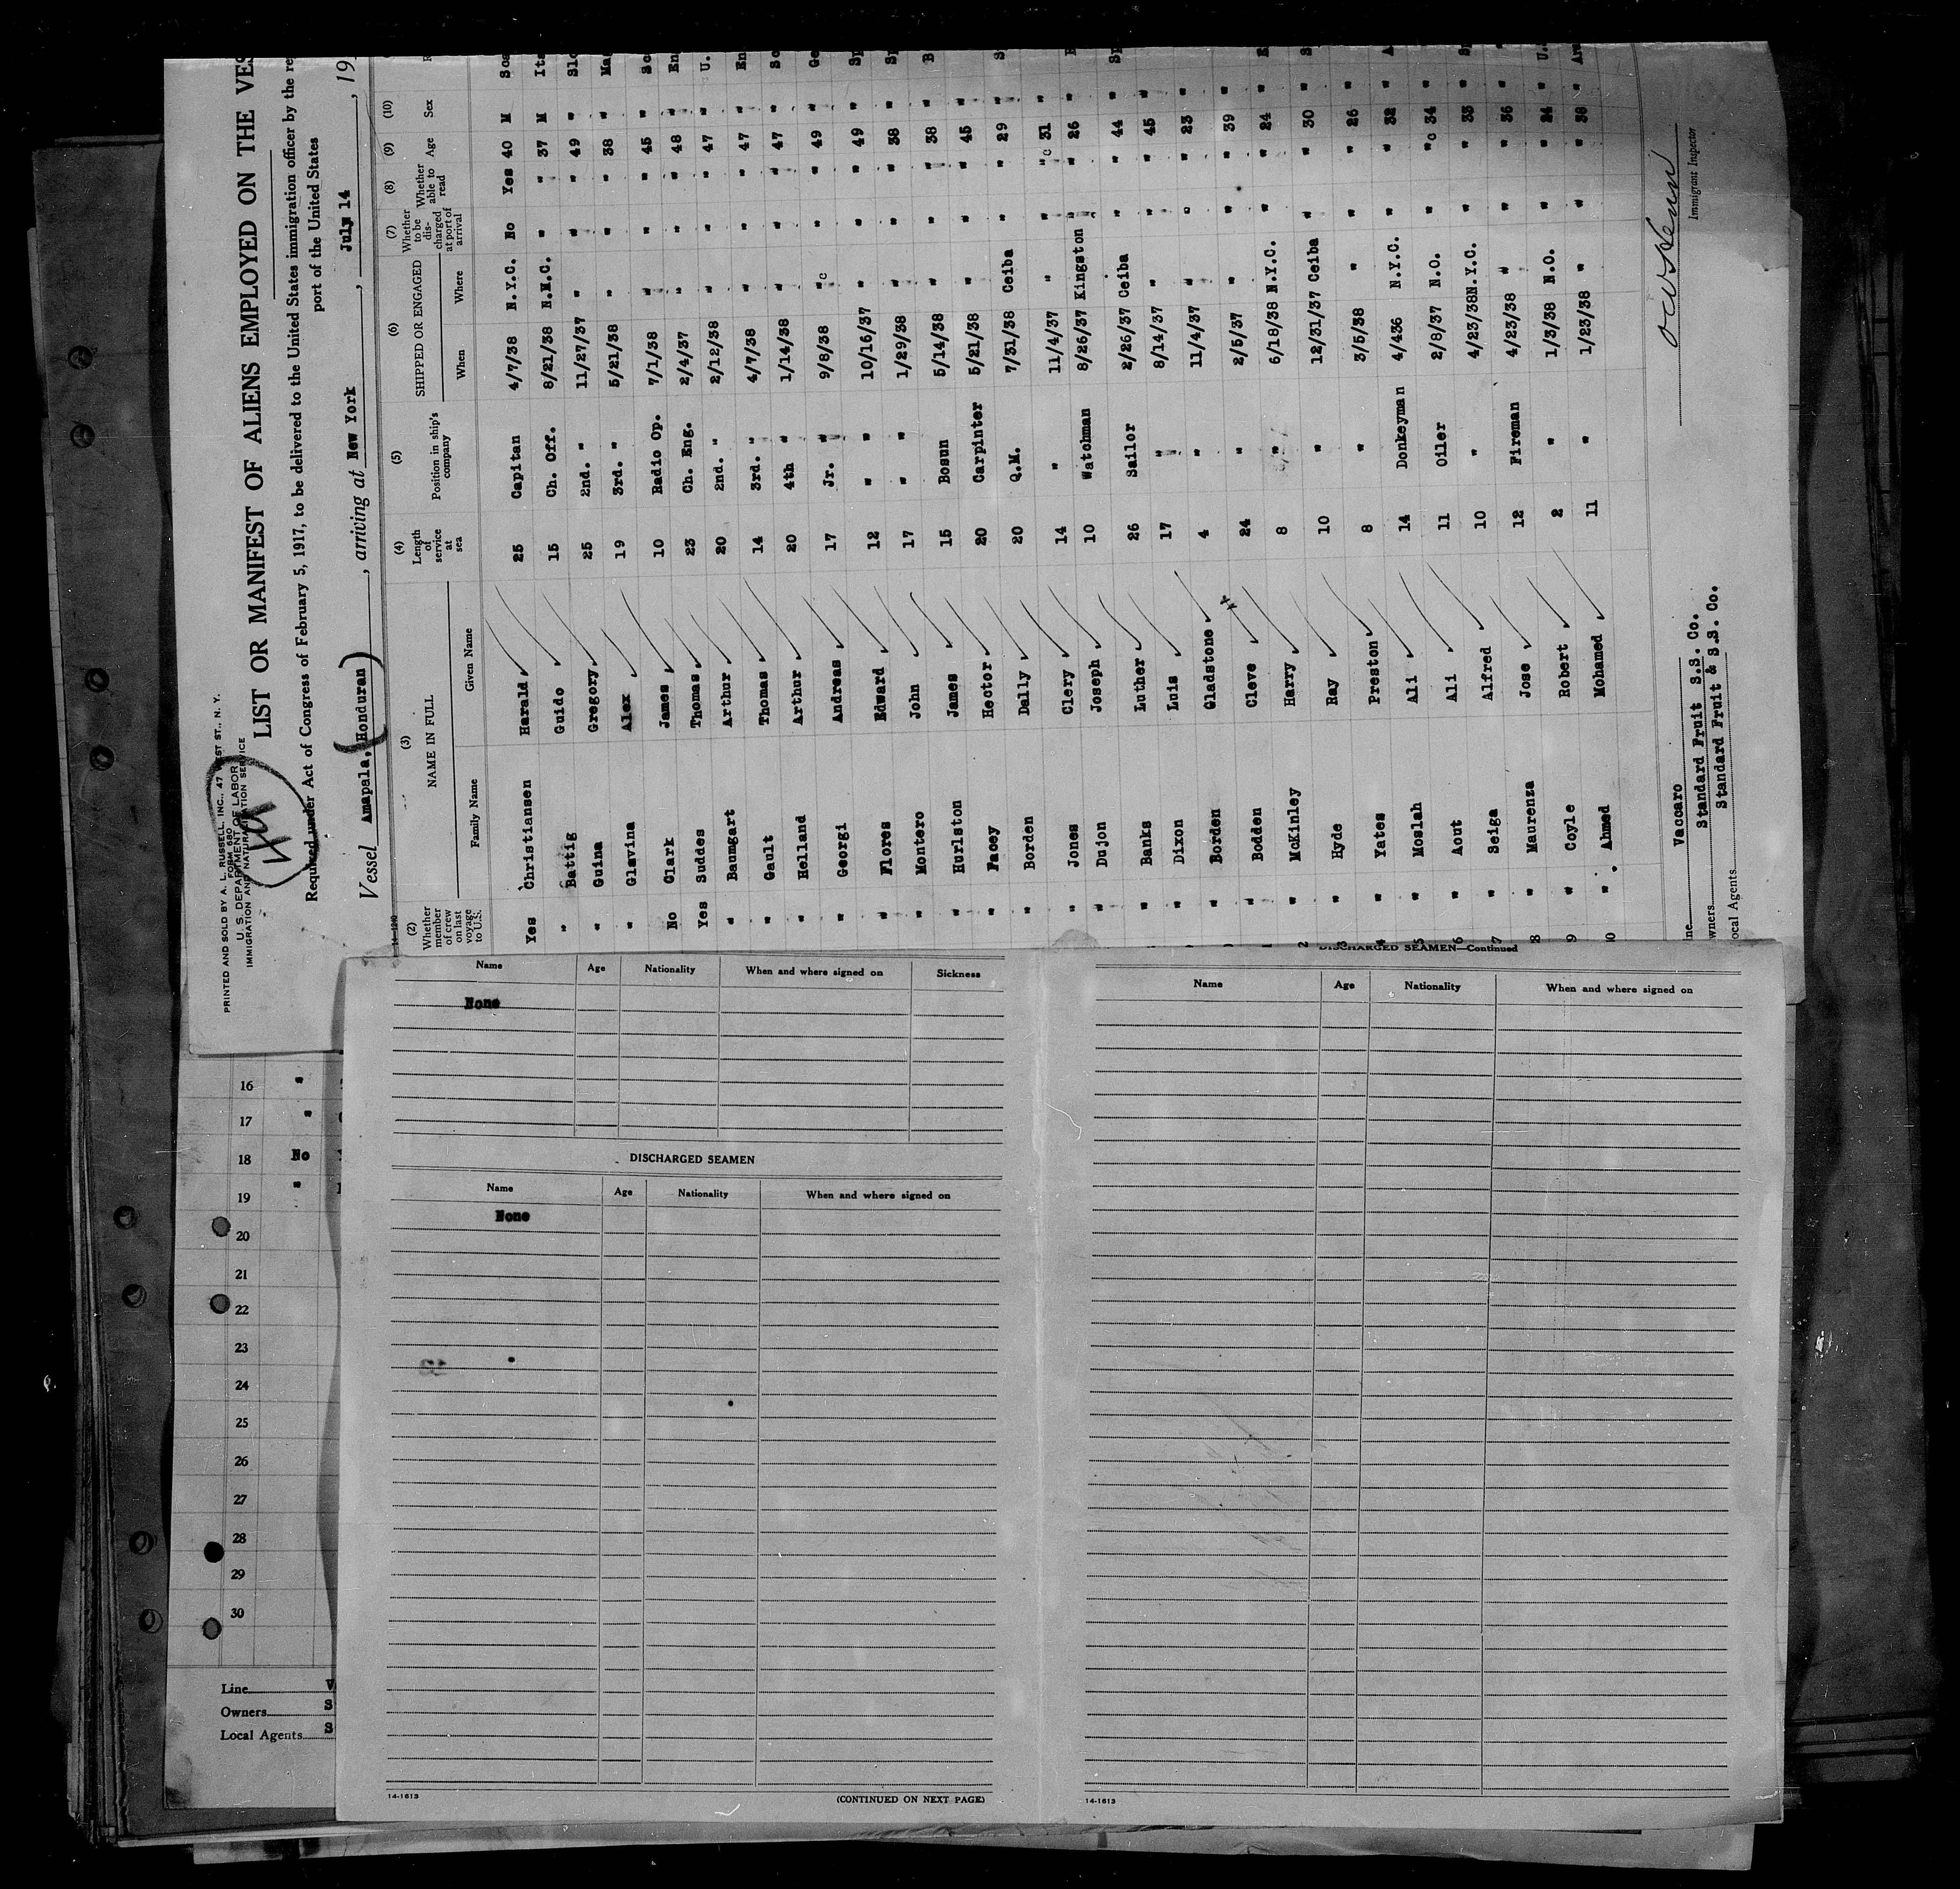 PRINTED AND SOLD BY A. L. RUSSELL, INC., 47 WEST ST., N. Y.
FORM 680
U. S. DEPARTMENT OF LABOR
IMMIGRATION AND NATURALIZATION SERVICE
LIST OR MANIFEST OF ALIENS EMPLOYED ON THE VES
Required under Act of Congress of February 5, 1917, to be delivered to the United States immigration officer by the re
port of the United States
Vessel Amapala, (Honduran), arriving at New York, July 14, 19
14-1240
(2) (3) (4) (5) (6) (7) (8) (9) (10)
Whether member of crew on last voyage to U.S. NAME IN FULL Length of service at sea Position in ship's company SHIPPED OR ENGAGED Whether to be discharged at port of arrival Whether able to read Age Sex
Family Name Given Name When Where
Yes Christiansen Harald 25 Capitan 4/7/38 N.Y.C. No Yes 40 M Sca
" Battig Guido 15 Ch. Off. 8/21/38 N.Y.C. " " 37 M Ita
" Guina Gregory 25 2nd. " 11/27/37 " " " 49 " Slo
" Glavina Alex 19 3rd. " 5/21/38 " " " 38 " Ma
No Clark James 10 Radio Op. 7/1/38 " " " 45 " Sc
Yes Suddes Thomas 23 Ch. Eng. 2/4/37 " " " 48 " En
" Baumgart Arthur 20 2nd. " 2/12/38 " " " 47 " U.
" Gault Thomas 14 3rd. " 4/7/38 " " " 47 " En
" Helland Arthur 20 4th " 1/14/38 " " " 47 " Sc
" Georgi Andreas 17 Jr. " 9/8/38 " " " 49 " Ge
" Flores Edward 12 " 10/16/37 " " " 49 " Sp
" Montero John 17 " 1/29/38 " " " 38 " Sp
" Hurlston James 15 Bosun 5/14/38 " " " 38 " B
" Facey Hector 20 Carpinter 5/21/38 " " " 45 "
" Borden Dally 20 Q.M. 7/31/38 Ceiba " " 29 " S
" Jones Clery 14 " 11/4/37 " " " 31 "
" Dujon Joseph 10 Watchman 8/26/37 Kingston " " 26 "
" Banks Luther 26 Sailor 2/26/37 Ceiba " " 44 " Sp
" Dixon Luis 17 " 8/14/37 " " " 45 "
" Borden Gladstone 4 " 11/4/37 " " " 23 "
" Bodden Cleve 24 " 2/5/37 " " " 39 "
" McKinley Harry 8 " 6/18/38 N.Y.C. " " 24 "
2 " Hyde Ray 10 " 12/31/37 Ceiba " " 30 " S
3 " Yates Preston 8 " 3/5/38 " " " 26 "
4 " Moslah Ali 14 Donkeyman 4/436 N.Y.C. " " 32 " A
5 " Aout Ali 11 Oiler 2/8/37 N.O. " " 34 "
6 " Seiga Alfred 10 " 4/23/38 N.Y.C. " " 33 " Sp
7 " Maurenza Jose 12 Fireman 4/23/38 " " " 36 " "
8 " Coyle Robert 2 " 1/3/38 N.O. " " 24 " U.
9 " Ahmed Mohamed 11 " 1/23/38 " " " 38 " Ar
0
ine Vaccaro
wners Standard Fruit S.S. Co.
ocal Agents Standard Fruit & S.S. Co.
Immigrant Inspector
Name Age Nationality When and where signed on Sickness
None
DISCHARGED SEAMEN
Name Age Nationality When and where signed on
None
14-1613
(CONTINUED ON NEXT PAGE)
DISCHARGED SEAMEN—Continued
Name Age Nationality When and where signed on
14-1613
16 "
17 "
18 No
19 "
20
21
22
23
24
25
26
27
28
29
30
Line V
Owners S
Local Agents S